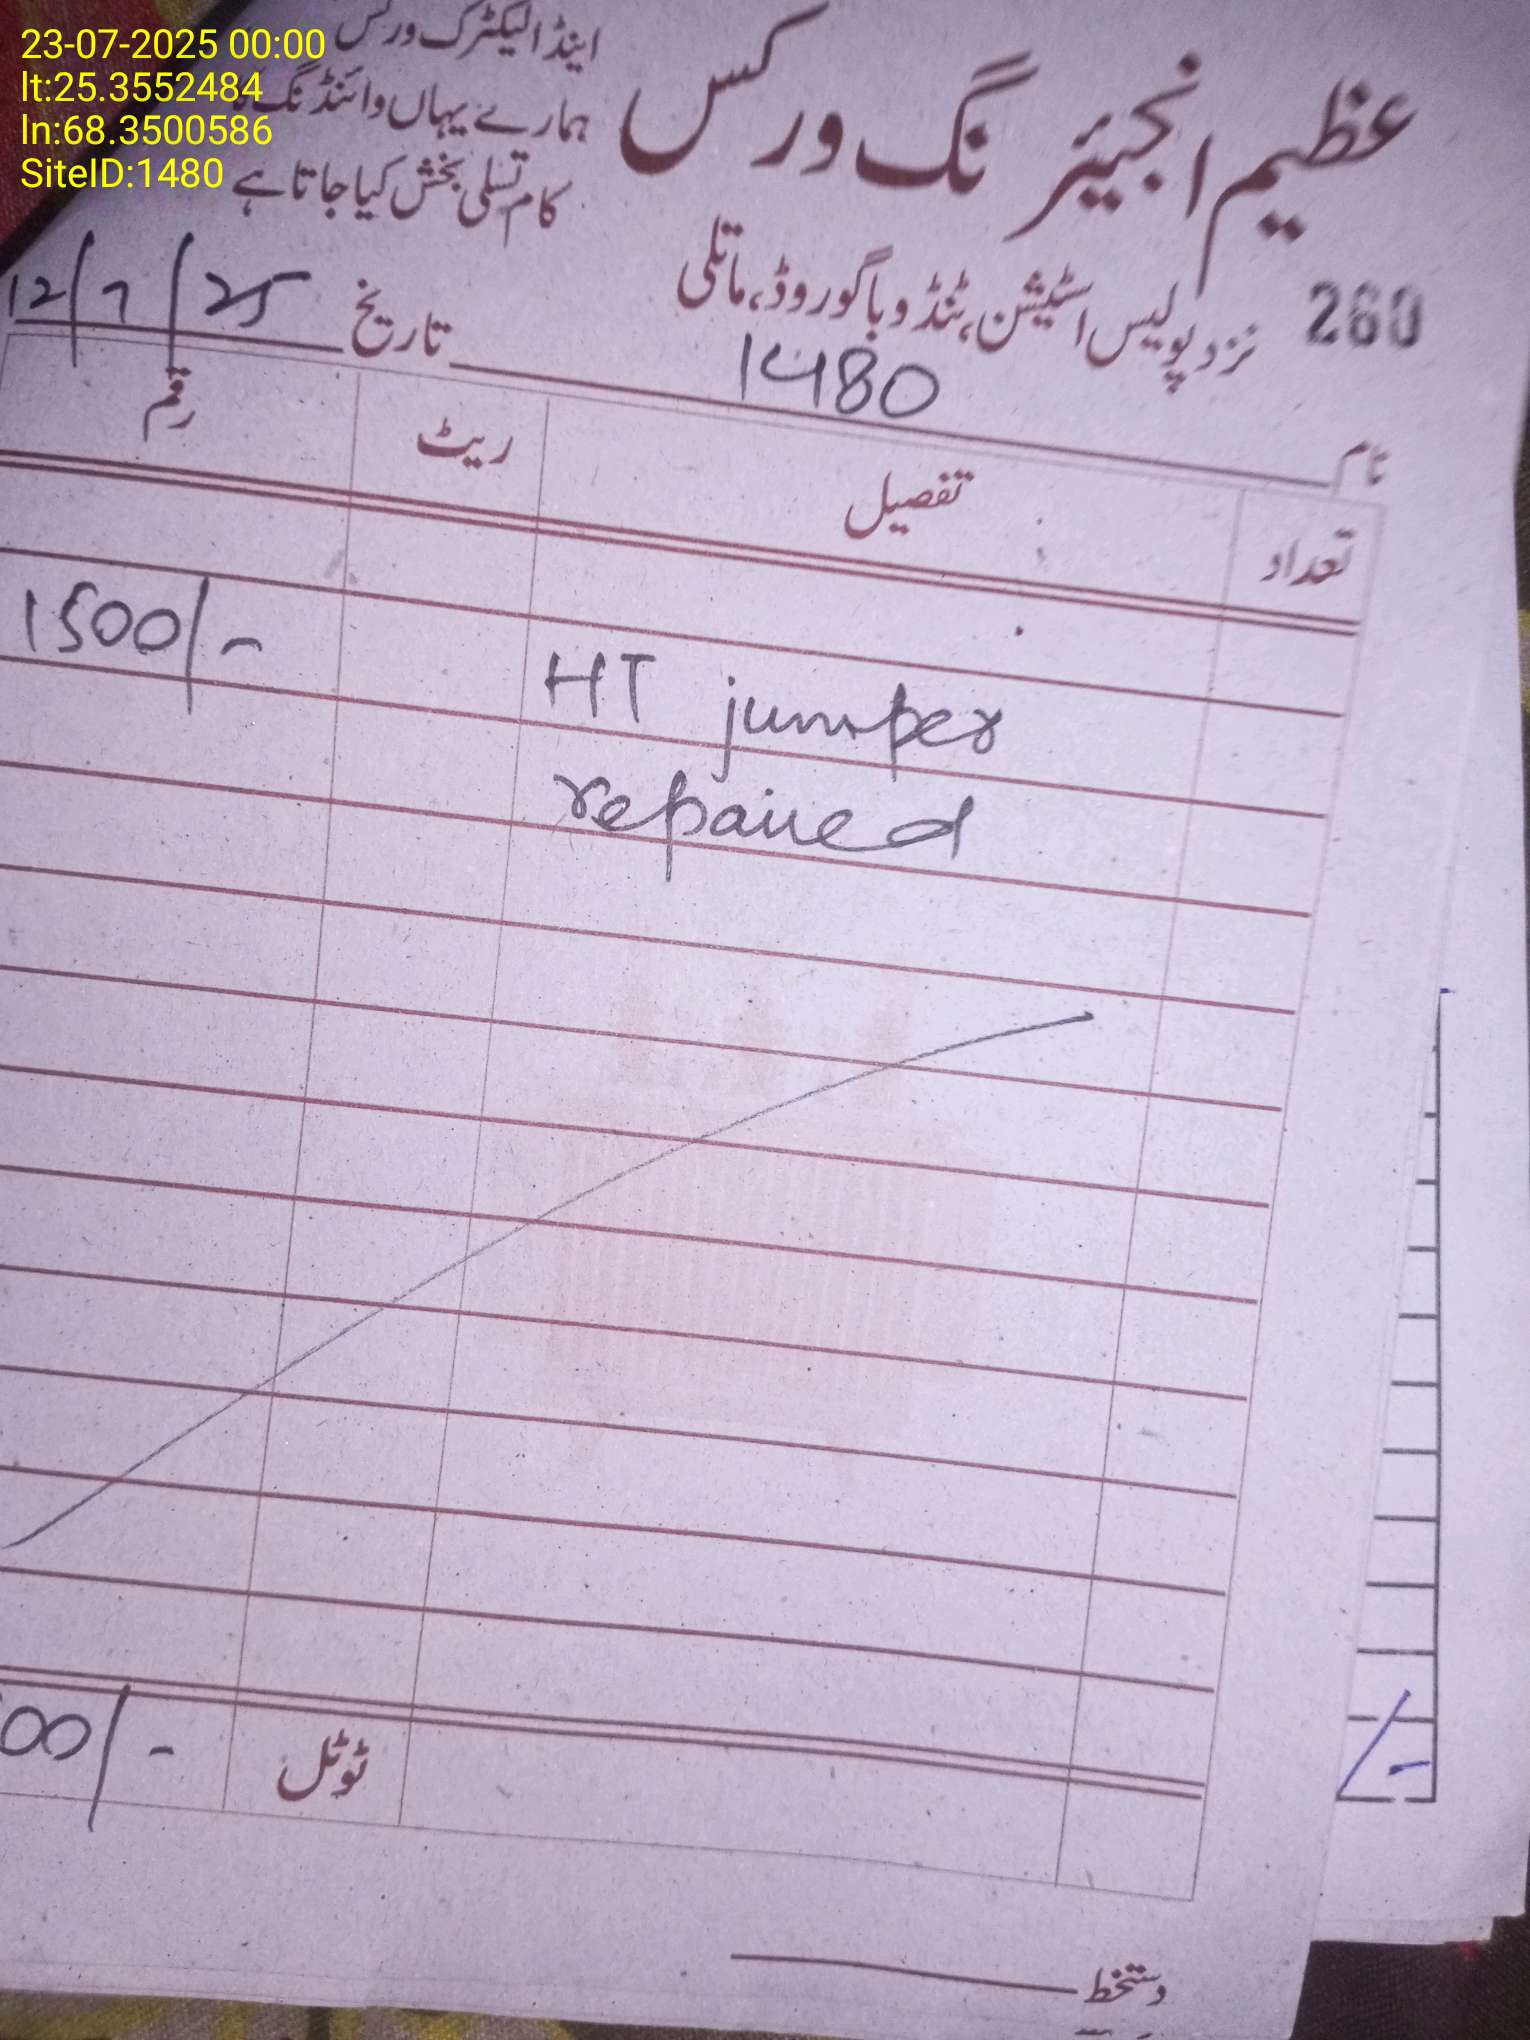 23-07-2025 00:00
lt:25.3552484
ln:68.3500586
SiteID:1480
عظیم انجینئرنگ ورکس
اینڈ الیکٹرک ورکس
ہمارے یہاں وائنڈنگ کا
کام تسلی بخش کیا جاتا ہے
260
نزد پولیس اسٹیشن، ٹنڈو باگو روڈ، ماتلی
نام 1480 تاریخ 12/7/25
تعداد تفصیل ریٹ رقم
HT jumper 1500/-
repaired
ٹوٹل 00/-
/-
دستخط